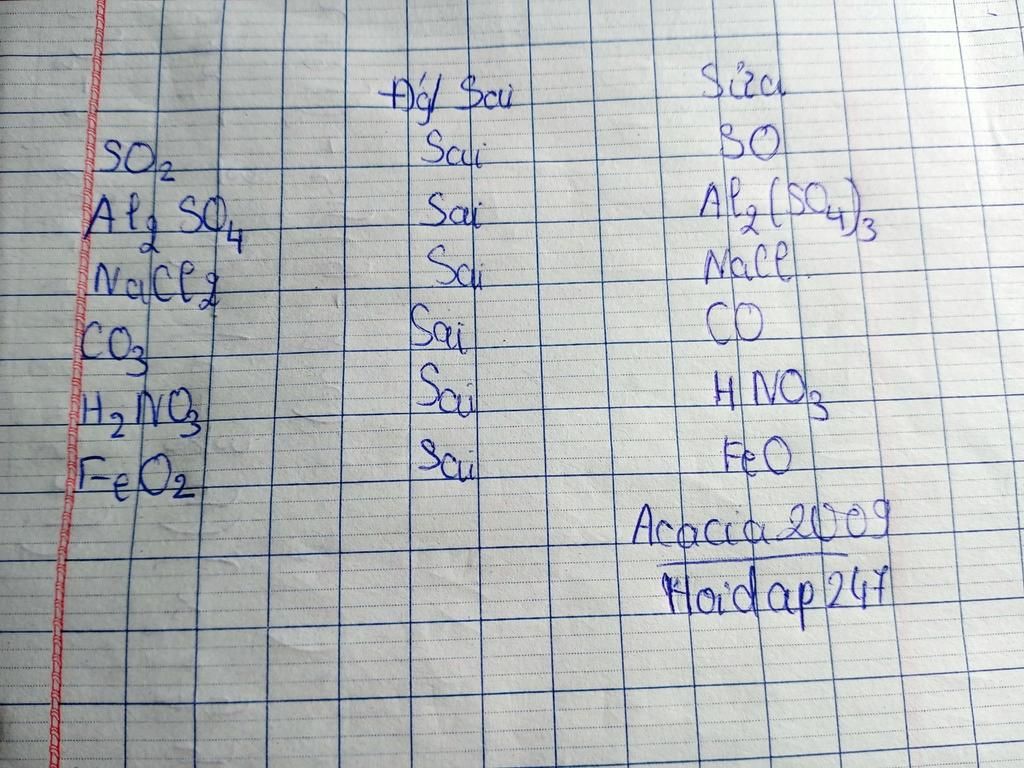 Đ/ Sai Sửa
SO₂ Sai SO
Al₂SO₄ Sai Al₂(SO₄)₃
NaCl₂ Sai NaCl
CO₃ Sai CO
H₂NO₃ Sai HNO₃
FeO₂ Sai FeO
Acacia2009
Hoidap247